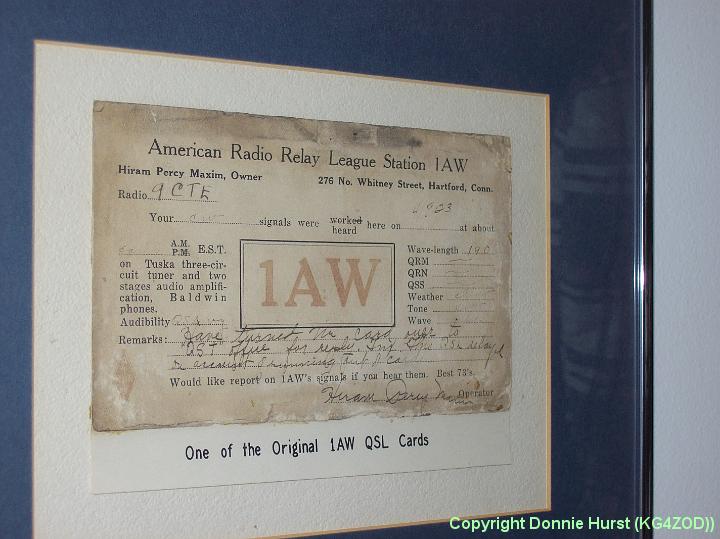 American Radio Relay League Station 1AW
Hiram Percy Maxim, Owner
276 No. Whitney Street, Hartford, Conn.
Radio 9CTE
1923
Your signals were worked heard here on at about
A.M. P.M. E.S.T.
on Tuska three-circuit tuner and two stages audio amplification, Baldwin phones.
Audibility
1AW
Wave-length 190
QRM
QRN
QSS
Weather
Tone
Wave
Remarks: Have turned Ur card over to
QST for QSL delay
account running out of
Would like report on 1AW's signals if you hear them. Best 73's.
Hiram Percy Maxim Operator
One of the Original 1AW QSL Cards
Copyright Donnie Hurst (KG4ZOD))